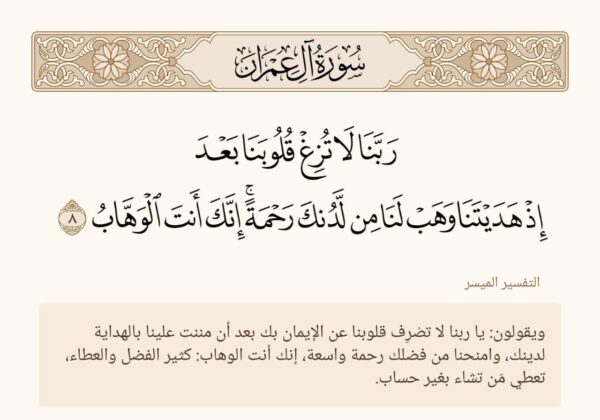 سُورَةُ آلِ عِمْرَان
رَبَّنَا لَا تُزِغْ قُلُوبَنَا بَعْدَ
إِذْ هَدَيْتَنَا وَهَبْ لَنَا مِن لَّدُنكَ رَحْمَةً ۚ إِنَّكَ أَنتَ ٱلْوَهَّابُ ٨
التفسير الميسر
ويقولون: يا ربنا لا تضرِف قلوبنا عن الإيمان بك بعد أن مننت علينا بالهداية
لدينك، وامنحنا من فضلك رحمة واسعة، إنك أنت الوهاب: كثير الفضل والعطاء،
تعطي مَن تشاء بغير حساب.